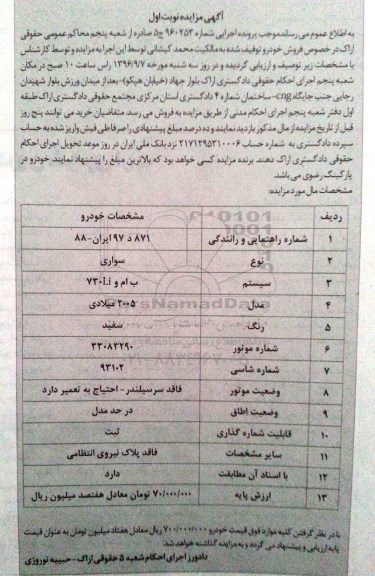 آگهی مزایده نوبت اول
به اطلاع عموم می رساند موجب پرونده اجرایی شماره ۹۶۰۲۵۳ ج۵ صادره از شعبه پنجم محاکم عمومی حقوقی
اراک در خصوص فروش خودرو توقیف شده به مالکیت محمد کیشانی توسط این اجرا به مزایده و توسط کارشناس
با مشخصات زیر توصیف و ارزیابی گردیده و در روز سه شنبه مورخه ۱۳۹۶/۹/۷ راس ساعت ۱۰ صبح در مکان
شعبه پنجم اجرای احکام حقوقی دادگستری اراک بلوار جهاد (خیابان هپکو)-بعد از میدان ورزش بلوار شهیدان
رجایی جنب جایگاه cng-ساختمان شماره ۴ دادگستری استان مرکزی مجتمع حقوقی دادگستری اراک طبقه
اول دفتر شعبه پنجم اجرای احکام مدنی از طریق مزایده به فروش می رسد. متقاضیان خرید می توانند پنج روز
قبل از تاریخ مزایده از مال مذکور بازدید نمایند و ده درصد مبلغ پیشنهادی را صرفا طی فیش واریز شده به حساب
سپرده دادگستری به شماره حساب ۲۱۷۱۲۹۵۳۱۰۰۰۶ نزد بانک ملی ایران در روز موعد تحویل اجرای احکام
حقوقی دادگستری اراک دهند. برنده مزایده کسی خواهد بود که بالاترین مبلغ را پیشنهاد نمایند. خودرو در
پارکینگ رضوی می باشد.
مشخصات مال مورد مزایده:
ردیف مشخصات خودرو
۱ شماره راهنمایی و رانندگی ۸۷۱ د ۹۷ ایران-۸۸
۲ نوع سواری
۳ سیستم ب ام و ۷۳۰Li
۴ مدل ۲۰۰۵ میلادی
۵ رنگ سفید
۶ شماره موتور ۳۳۰۸۳۲۹۰
۷ شماره شاسی ۹۳۱۰۲
۸ وضعیت موتور فاقد سرسیلندر- احتیاج به تعمیر دارد
۹ وضعیت اطاق در حد مدل
۱۰ قابلیت شماره گذاری ثبت
۱۱ سایر مشخصات فاقد پلاک نیروی انتظامی
۱۲ با اسناد آن مطابقت دارد
۱۳ ارزش پایه ۷۰/۰۰۰/۰۰۰ تومان معادل هفتصد میلیون ریال
با در نظر گرفتن کلیه موارد فوق قیمت خودرو ۷۰۰/۰۰۰/۰۰۰ ریال معادل هفتاد میلیون تومان به عنوان قیمت
پایه ارزیابی و پیشنهاد می گردد و به مزایده گذاشته خواهد شد.
دادورز اجرای احکام شعبه ۵ حقوقی اراک- حبیبه نوروزی